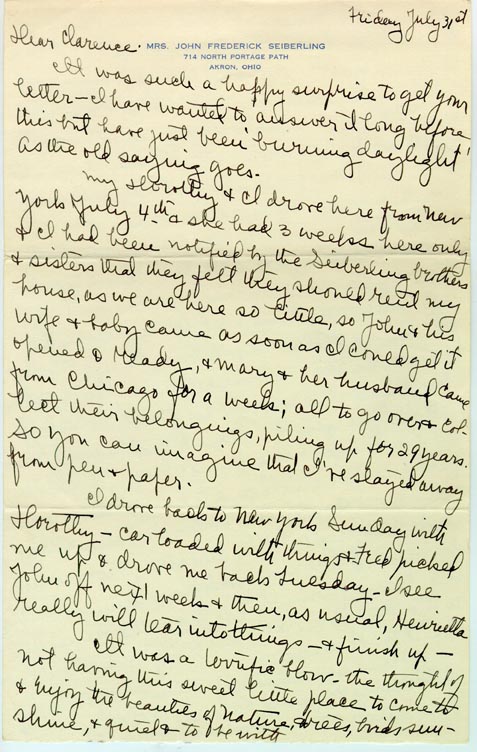 Friday July 31st
Dear Clarence.
MRS. JOHN FREDERICK SEIBERLING
714 NORTH PORTAGE PATH
AKRON, OHIO
It was such a happy surprise to get your
letter – I have wanted to answer it long before
this but have just been "burning daylight"
as the old saying goes.
My Dorothy & I drove here from New
York July 4th & she had 3 weeks here only
& I had been notified by the Seiberling brothers
& sisters that they felt they should rent my
house, as we are here so little, so John & his
wife & baby came as soon as I could get it
opened & ready, & Mary & her husband came
from Chicago for a week; all to go over & col-
lect their belongings, piling up for 29 years.
So you can imagine that I've stayed away
from pen & paper.
I drove back to New York Sunday with
Dorothy – car loaded with things & Fred picked
me up & drove me back Tuesday – I see
John off next week & then, as usual, Henrietta
really will tear into things – & finish up –
It was a terrific blow – the thought of
not having this sweet little place to come to
& enjoy the beauties of nature, trees, birds sun-
shine, & quiet & to be with